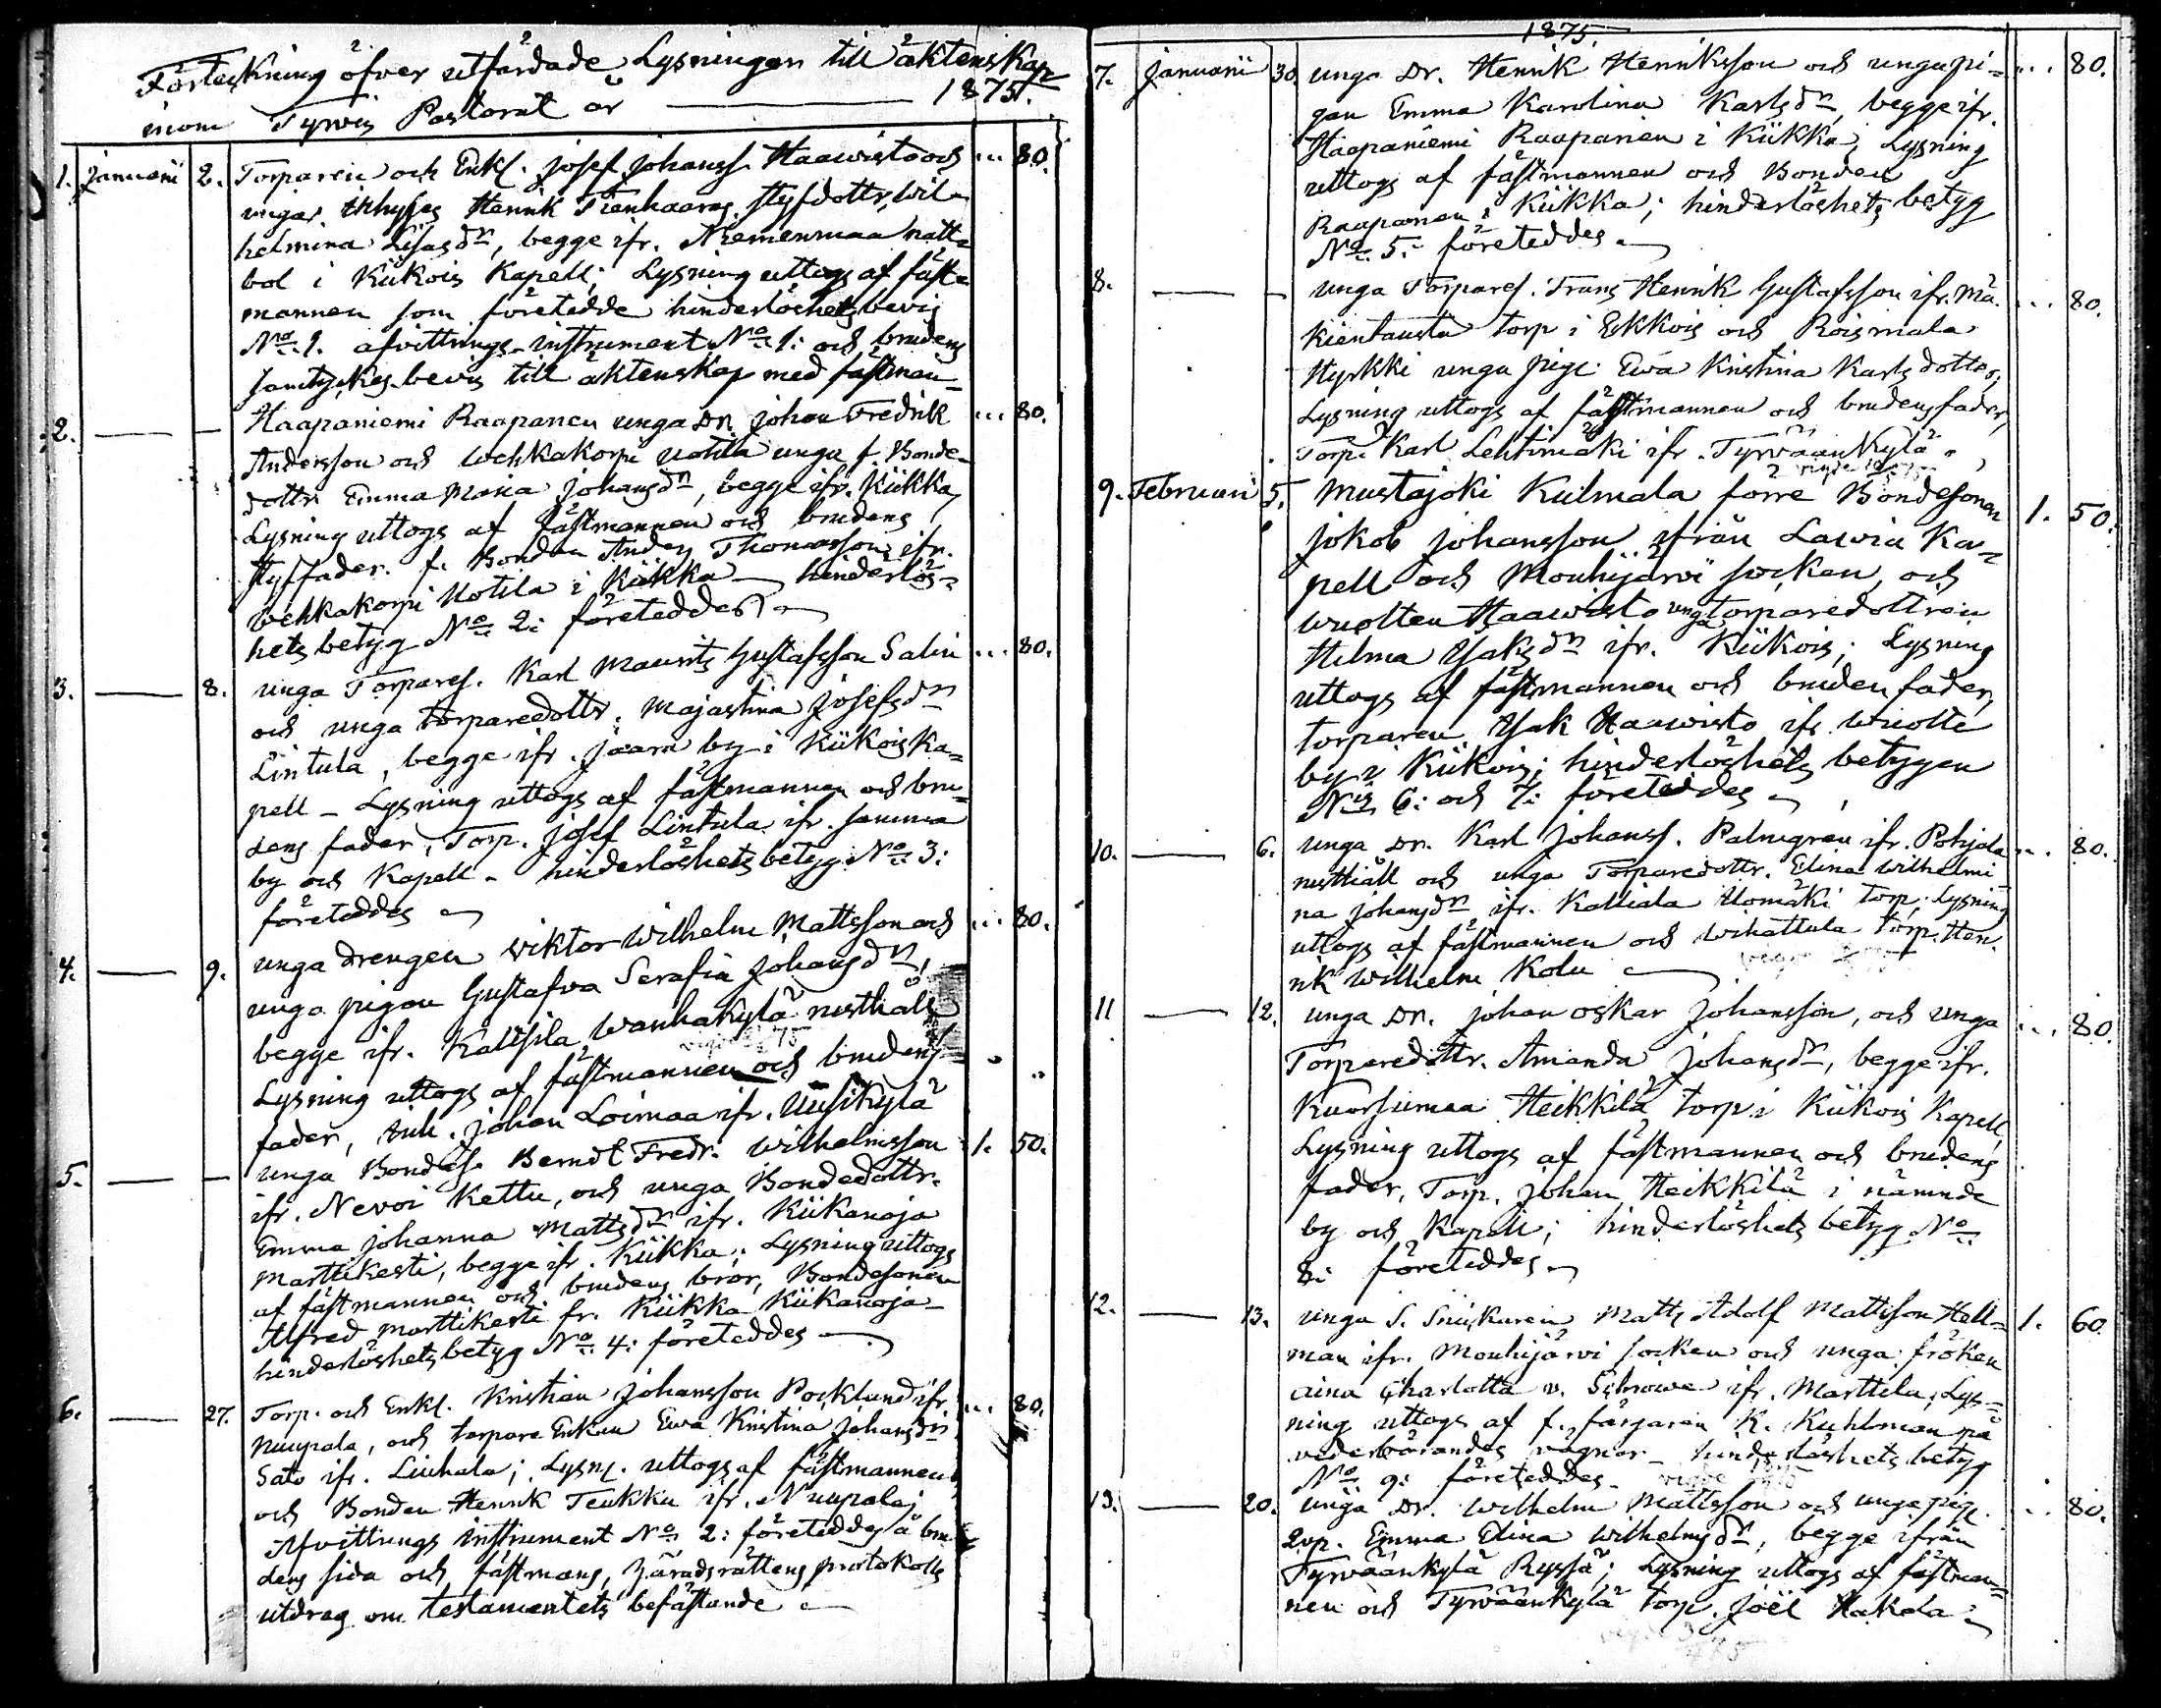 Förteckning öfver utfärdade Lysningar till äktenskap
inom Tyrvis Pastorat år — 1875.
1. Januarii 2. Torparen och Enkl. Josef Johanss. Haawisto och ... 80.
inhyses Henrik Tienhaaras styfdottr, Wil-
helmina Lisasdr, begge ifr. Niemenmaa
bol i Kiikois Kapell; Lysning uttogs af fäst-
mannen som företedde hinderlöshets bevis
No 1. afvittrings-instrument No 1: och brudens
samtyckes-bevis till äktenskap med fästman-
2. — — Haapaniemi Raapanen unga Dr. Johan Fredrik ... 80.
Andersson och Wehkakorpi Uotila unga f. Bonde-
dottr. Emma Maria Johansdr, begge ifr. Kiikka,
Lysning uttogs af fästmannen och brudens
styffader. f. Bonden Anders Thomasson ifr.
Wehkakorpi Uotila i Kiikka — hinderlös-
hets betyg No 2: företeddes —
3. — 8. unga Torpares. Karl Maurits Gustafsson Salin ... 80.
och unga torparedottr. Majastina Josefsdr
Lintula, begge ifr. Jaara by i Kiikois Ka-
pell - Lysning uttogs af fästmannen och bru-
dens fader, Torp. Josef Lintula ifr. samma
by och Kapell - hinderlöshets betyg No 3:
företeddes —
4. — 9. unga drengen Wiktor Wilhelm Mattsson och ... 80.
unga pigan Gustafva Serafia Johansdr,
begge ifr. Kaltsila Wanhakylä rusthåll
Lysning uttogs af fästmannen och brudens
fader, Inh. Johan Loimaa ifr. Uusikylä
5. — — unga Bondes. Berndt Fredr. Wilhelmsson 1. 50.
ifr. Nevoi Kettu, och unga Bondedottr.
Emma Johanna Mattsdr ifr. Kiikanoja
Marttikesti, begge ifr. Kiikka; Lysning uttogs
af fästmannen och brudens bror, Bondesonen
Alfred Marttikesti fr. Kiikka Kiikanoja -
hinderlöshets betyg No 4: företeddes —
6. — 27. Torp. och Enkl. Kristian Johansson Pocklund ifr. ... 80.
Nuupala, och torpare Enkan Ewa Kristina Johansdr
Sato ifr. Liuhala; Lysn. uttogs af fästmannen
och Bonden Henrik Teukku ifr. Nuupala;
Afvittrings instrument No 2: företeddes å bru-
dens sida och fästmans, häradsrättens protokolls
utdrag om testamentets befästande —
1875.
7. Januarii 30. unga Dr. Henrik Henriksson och unga pi- ... 80.
gan Emma Karolina Karlsdr, begge ifr.
Haapaniemi Raapanen i Kiikka, Lysning
uttogs af fästmannen och Bonden
Raapanen i Kiikka; hinderlöshets betyg
No 5: företeddes —
8. — — unga Torpares. Frans Henrik Gustafsson ifr. Mä- ... 80.
kientausta torp i Ekkois och Roismala
Hyrkki unga pige Ewa Kristina Karlsdotter,
Lysning uttogs af fästmannen och brudens fader,
Torp. Karl Lehtimäki ifr. Tyrväänkylä —
9. Februari 5. Mustajoki Kulmala förre Bondesonen 1. 50.
Jakob Johansson ifrån Lawia Ka-
pell och Mouhijärvi socken, och
Wuolten Haawisto unga torparedottren
Hilma Isaksdr ifr. Kiikois; Lysning
uttogs af fästmannen och bruden fader,
torparen Isak Haawisto ifr. Wuolte
by i Kiikois; hinderlöshets betygen
Nis 6: och 7: företeddes —
10. — 6. unga Dr. Karl Johanss. Palmgren ifr. Pohjala ... 80.
rusthåll och unga Torparedottr. Elina Wilhelmi-
na Johansdr ifr. Kalliala Uomäki torp; Lysning
uttogs af fästmannen och Wihattula torp. Hen-
rik Wilhelm Kolu —
11 — 12. unga Dr. Johan Oskar Johansson, och unga ... 80.
Torparedottr. Amanda Johansdr, begge ifr.
Kuorsumaa Heikkilä torp i Kiikois Kapell,
Lysning uttogs af fästmannen och brudens
fader, Torp. Johan Heikkilä i nämnde
by och Kapell; hinderlöshets betyg No
8: företeddes —
12. — 13. unga S. Snickaren Matts Adolf Mattsson Hell- 1. 60.
man ifr. Mouhijärvi socken och unga fröken
Aina Charlotta v. Schrowe ifr. Marttila; Lys-
ning uttogs af f. färgaren K. Kuhlman på
vederbörandes vägnar - hinderlöshets betyg
No 9: företeddes -
13. — 20. unga Dr. Wilhelm Mattsson och unga pig. .. 80.
Emma Elina Wilhelmsdr, begge ifrån
Tyrväänkylä Ryssä; Lysning uttogs af fästman-
nen och Tyrväänkylä torp. Joël Hakala —